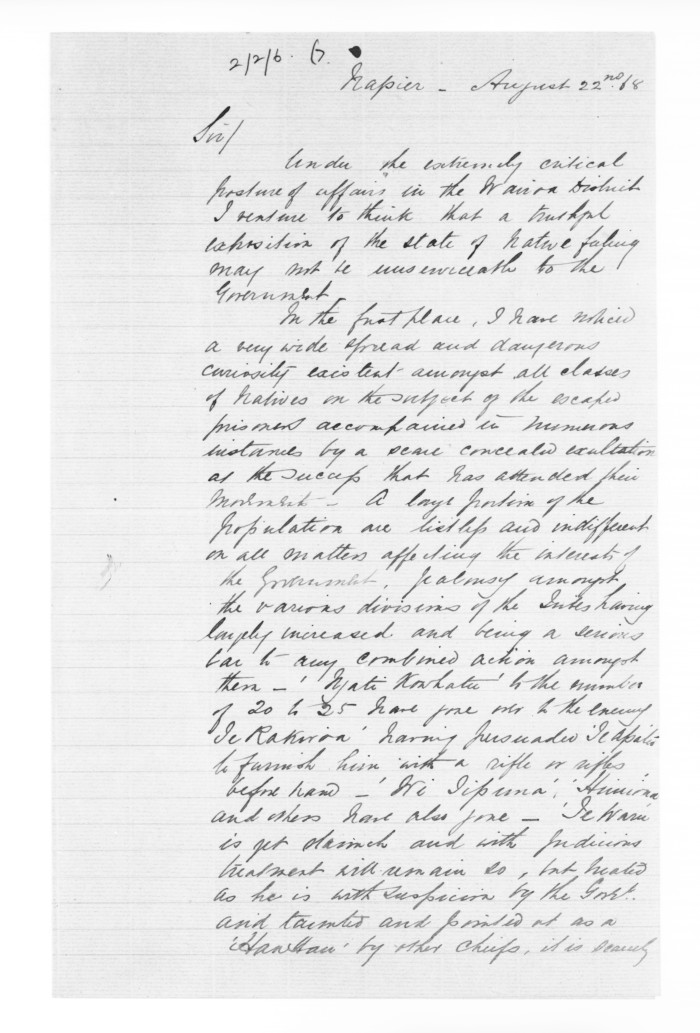 2/2/6. 67.
Napier - August 22nd. 68
Sir/
Under "the extremely critical
posture of affairs" in the Wairoa District
I venture to think that a truthful
exposition of the state of Native feeling
may not be unserviceable to the
Government
In the first place, I have noticed
a very wide spread and dangerous
curiosity existent amongst all classes
of Natives on the subject of the escaped
prisoners accompanied in numerous
instances by a scarce concealed exultation
at the success that has attended their
movement - A large portion of the
population are listless and indifferent
on all matters affecting the interests of
the Government, jealousy amongst
the various divisions of the Tribes having
largely increased and being a serious
bar to any combined action amongst
them - 'Ngati Kowhatu' to the number
of 20 to 25 have gone over to the enemy
Te Rakiroa' having persuaded 'Te Apatu
to furnish him with a rifle or rifles
before hand - 'Wi Tipuna',
and others have also gone - 'Te Waru'
is yet staunch and with judicious
treatment will remain so, but treated
as he is with suspicion by the Govt.
and taunted and pointed at as a
'Hau Hau' by other chiefs, it is scarcely